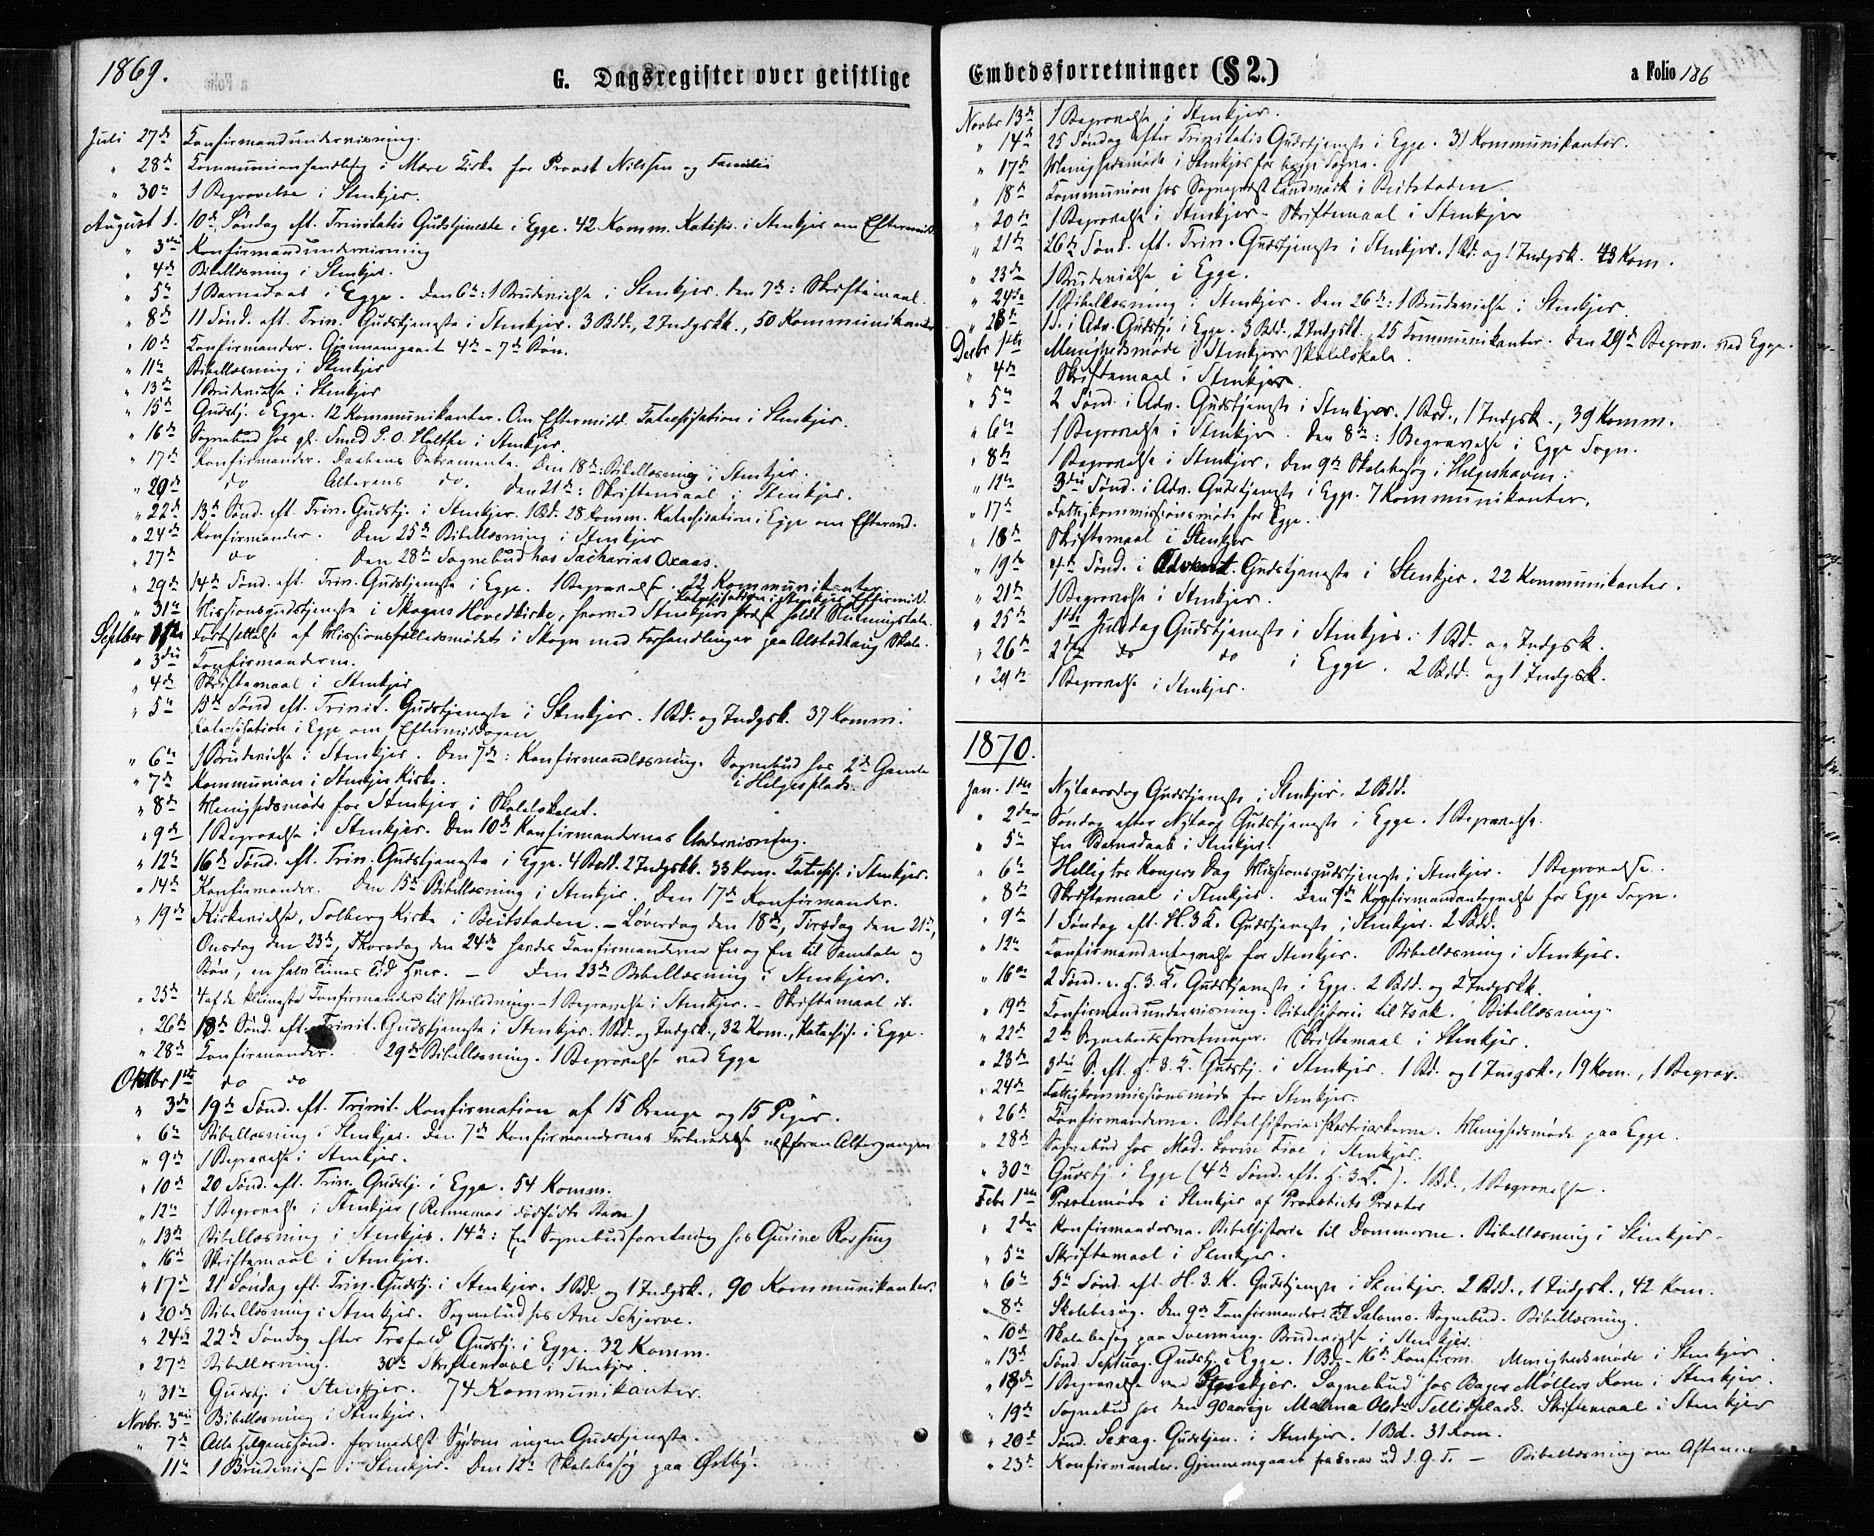 1869.
G. Dagsregister over geistlige
Juli 27de Konfirmandundervisning.
" 28de Kommunionhandling i Mære Kirke for Provst Nilssen og Familie
" 30te 1 Begravelse i Stenkjer.
August 1. 10de Søndag eft. Trinitatis Gudstjeneste i Egge. 42 Komm. Katekis. i Stenkjer om Eftermidd.
" 3die Konfirmandundervisning
" 4de Bibellæsning i Stenkjer.
" 5te 1 Barnedaab i Egge. Den 6te: 1 Brudevielse i Stenkjer. Den 7de: Skriftemaal.
" 8de 11 Sønd. eft. Trin. Gudstjeneste i Stenkjer. 3 Bdd., 2 Indgskk., 50 Kommunikanter
" 10de Konfirmander. Gjennemgaaet 4de - 7de Bøn.
" 11te Bibellæsning i Stenkjer
" 13de 1 Brudevielse i Stenkjer
" 15de Gudstj. i Egge. 12 Kommunikanter. Om Eftermidd. Katechisation i Stenkjer.
" 16de Sognebud hos gl. Smed P. O. Holthe i Stenkjer.
" 17de Konfirmander. Daabens Sakramente. Den 18de: Bibellæsning i Stenkjer.
" 20de do Alterens do. Den 21de: Skriftemaal i Stenkjer.
" 22de 13de Sønd. eft. Trin. Gudstj. i Stenkjer. 1 Bd. 28 Komm. Katechisation i Egge om Efterm.
" 24de Konfirmander. Den 25de Bibellæsning i Stenkjer
" 27de do Den 28de Sognebud hos Zacharias Oxaas.
" 29de 14de Sønd. eft. Trin. Gudstjeneste i Egge. 1 Begravelse. 22 Kommunikanter
Katechisation i Stenkjer Eftermid.
" 31te Missionsgudstjeneste i Skogns Hovedkirke, hvorved Stenkjers Præst holdt Slutningstale.
Septber 1ste Fortsættelse af Missionsfællesmødet i Skogn med Forhandlinger paa Alstadhaug Skole.
" 3die Konfirmanderne.
" 4de Skriftemaal i Stenkjer
" 5te 15de Sønd eft. Trinit. Gudstjeneste i Stenkjer. 1 Bd. og Indgsk. 37 Komm.
Katechisation i Egge om Eftermiddagen
" 6te 1 Brudevielse i Stenkjer. Den 7de: Konfirmandlæsning. Sognebud hos 2de Gamle
" 7de Kommunion i Stenkjer Kirke. i Helgesplads.
" 8de Menighedsmøde for Stenkjer i Skolelokalet.
" 9de 1 Begravelse i Stenkjer. Den 10de Konfirmandernes Undervisning.
" 12te 16de Sønd. eft. Trin. Gudstjeneste i Egge. 4 Bdd. 2 Indgskk. 33 Kom. Katechs. i Stenkjer.
" 14de Konfirmander. Den 15de Bibellæsning i Stenkjer. Den 17de Konfirmander.
" 19de Kirkevielse, Solberg Kirke i Beitstaden. - Løverdag den 18de, Tirsdag den 21de,
Onsdag den 23de, Thorsdag den 24de havdes Konfirmanderne En og En til Samtale og
Bøn, en halv Times Tid hver. - Den 23de Bibellæsning i Stenkjer.
" 25de 4 af de flinkeste Konfirmander til Veiledning. - 1 Begravelse i Stenkjer. - Skriftemaal ib.
" 26de 18de Sønd. eft. Trinit. Gudstjeneste i Stenkjer. 1 Bd. og Indgsk., 32 Kom., Katechs. i Egge.
" 28de Konfirmander. 29de Bibellæsning. 1 Begravelse ved Egge
Oktbr 1ste do do
" 3de 19de Sønd. eft. Trinit. Konfirmation af 15 Drenge og 15 Piger.
" 6te Bibellæsning i Stenkjer. Den 7de Konfirmandernes Forberedelse næstforan Altergangen
" 9de 1 Begravelse i Stenkjer.
" 10de 20 Sønd. eft. Trin. Gudstj. i Egge. 54 Komm.
" 12te 1 Begravelse i Stenkjer (Rennemos dødfødte Barn)
" 13de Bibellæsning i Stenkjer. 14de: En Sognebudforretning hos Gurine Rørsing
" 16de Skriftemaal i Stenkjer.
" 17de 21 Søndag eft. Trin. Gudstj. i Stenkjer. 1 Bd. og 1 Indgsk., 90 Kommunikanter.
" 20de Bibellæsning i Stenkjer. Sognebud hos Ane Schjerve.
" 24de 22de Søndag efter Trefold. Gudstj. i Egge. 32 Komm.
" 27de Bibellæsning. 30te Skriftemaal i Stenkjer.
" 31te Gudstj. i Stenkjer. 74 Kommunikanter.
Novbr. 3die Bibellæsning i Stenkjer.
" 7de Alle Helgens Sønd. formedelst Sygdom ingen Gudstjeneste.
" 11te 1 Brudevielse i Stenkjer. Den 12te Skolebesøg paa Østby.
Embedsforretninger (§ 2.)
a Folio 186
Novbr 13de 1 Begravelse i Stenkjer.
" 14de 25 Søndag efter Trinitatis Gudstjeneste i Egge. 31 Kommunikanter.
" 17de Menighedsmøde i Stenkjer for begge Sogne.
" 18de Kommunion hos Sognepræst Landmark i Beitstaden
" 20de 1 Begravelse i Stenkjer - Skriftemaal i Stenkjer
" 21de 26de Sønd. eft. Trin. Gudstjeneste i Stenkjer. 1 Bd. og 1 Indgsk. 43 Kom.
" 23de 1 Brudevielse i Egge.
" 24de 1 Bibellæsning i Stenkjer. Den 26de: 1 Brudevielse i Stenkjer.
" 28de 1 S. i Adv. Gudstj. i Egge. 3 Bdd., 2 Indgskk. 25 Kommunikanter. Den 29de Begrav. ved Egge.
Decbr 1ste Menighedsmøde i Stenkjers Skolelokale.
" 4de Skriftemaal i Stenkjer.
" 5te 2 Sønd. i Adv. Gudstjeneste i Stenkjer. 1 Bd., 1 Indgsk., 39 Komm.
" 6te 1 Begravelse i Stenkjer. Den 8de: 1 Begravelse i Egge Sogn.
" 8de 1 Begravelse i Stenkjer. Den 9de Skolebesøg i Helgeshaven.
" 12te 3die Sønd. i Adv. Gudstjeneste i Egge. 7 Kommunikanter.
" 17de Fattigkommissionsmøde for Egge.
" 18de Skriftemaal i Stenkjer
" 19de 4de Sønd. i Advent. Gudstjeneste i Stenkjer. 22 Kommunikanter.
" 21de 1 Begravelse i Stenkjer.
" 25de 1ste Juledag Gudstjeneste i Stenkjer. 1 Bd. og Indgsk.
" 26de 2den do do i Egge. 2 Bdd. og 1 Indgsk.
" 29de 1 Begravelse i Stenkjer.
1870.
Jan. 1ste Nytaarsdag Gudstjeneste i Stenkjer. 2 Bdd.
" 2den Søndag efter Nytaar Gudstjeneste i Egge. 1 Begravelse.
" 5te En Barnedaab i Stenkjer.
" 6te Hellig tre Kongers Dag Missionsgudstjeneste i Stenkjer. 1 Begravelse.
" 8de Skriftemaal i Stenkjer. Den 7de Konfirmandantagelse for Egge Sogn.
" 9de 1 Søndag eft. H. 3 K. Gudstjeneste i Stenkjer. 2 Bdd.
" 12te Konfirmandantagelse for Stenkjer. Bibellæsning i Stenkjer.
" 16de 2 Sønd. e. H. 3. K. Gudstjeneste i Egge. 2 Bdd. og 2 Indgskk.
" 19de Konfirmandundervisning. Bibelhistorie til Isak. Bibellæsning.
" 22de 2de Sognebudsforretninger. Skriftemaal i Stenkjer.
" 23de 3die S. eft. H. 3. K. Gudstj. i Stenkjer. 1 Bd. og 1 Indgsk., 19 Kom., 1 Begrav.
" 24de Fattigkommissionsmøde for Stenkjer.
" 26de Konfirmanderne. Bibelhistorie: Patriarkerne. Menighedsmøde paa Egge.
" 28de Sognebud hos Mad. Lovise i Stenkjer.
" 30te Gudstj. i Egge (4de Sønd. eft. H. 3. K.). 1 Bd., 1 Begravelse.
Febr 1ste Præstemøde i Stenkjer af Provstiets Præster
" 2den Konfirmanderne. Bibelhistorie til Dommerne. Bibellæsning i Stenkjer.
" 5te Skriftemaal i Stenkjer.
" 6te 5te Sønd. eft. H. 3. K. Gudstjeneste i Stenkjer. 2 Bdd., 1 Indgsk., 42 Kom.
" 8de Skolebesøg. Den 9de Konfirmander til Salomo. Sognebud. Bibellæsning.
" 10de Skolebesøg paa Svenning. Brudevielse i Stenkjer.
" 13de Sønd Septuag. Gudstj. i Egge. 1 Bd. - 16de Konfirm. Menighedsmøde i Stenkjer.
" 18de 1 Begravelse ved Stenkjer. Sognebud hos Bager Møllers Kone i Stenkjer.
" 19de Sognebud hos den 90aarige Malena Olsdr Plads. Skriftemaal i Stenkjer
" 20de Sønd. Sexag. Gudstjen. i Stenkjer. 1 Bd. 31 Kom.
" 23de Konfirmander. Gjennemgaaet ud D. G. T. - Bibellæsning om Aftenen